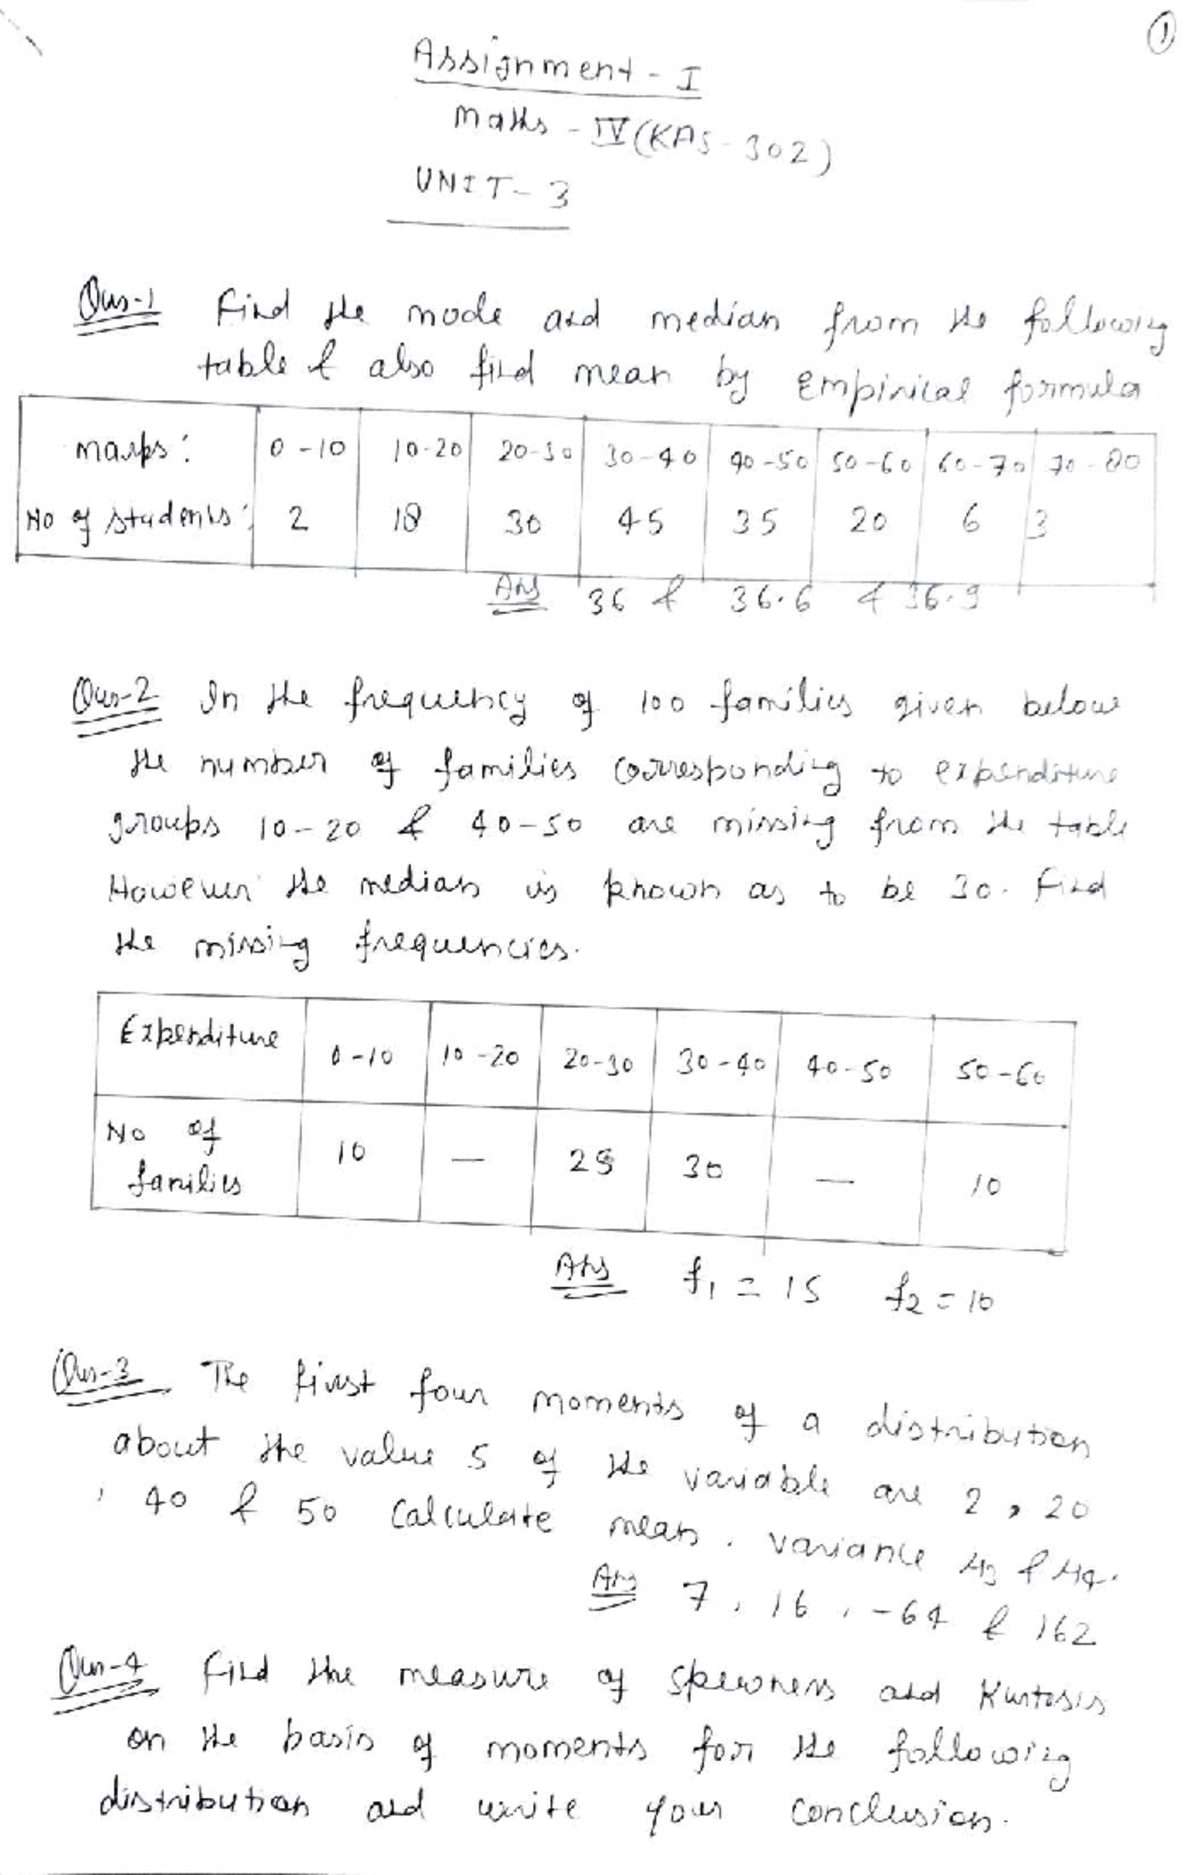 1
Assignment - I
Maths - IV (KAS-302)
UNIT - 3
Ques-1 Find the mode and median from the following
table & also find mean by empirical formula
Marks: 0-10 10-20 20-30 30-40 40-50 50-60 60-70 70-80
No of students: 2 18 30 45 35 20 6 3
Ans 36 & 36.6 & 36.9
Ques-2 In the frequency of 100 families given below
the number of families corresponding to expenditure
groups 10-20 & 40-50 are missing from the table
However the median is known as to be 30. Find
the missing frequencies.
Expenditure 0-10 10-20 20-30 30-40 40-50 50-60
No of families 10 — 25 30 — 10
Ans f1 = 15 f2 = 10
Ques-3 The first four moments of a distribution
about the value 5 of the variable are 2, 20
, 40 & 50 Calculate mean, variance μ3 & μ4.
Ans 7, 16, -64 & 162
Ques-4 Find the measure of skewness and Kurtosis
on the basis of moments for the following
distribution and write your conclusion.